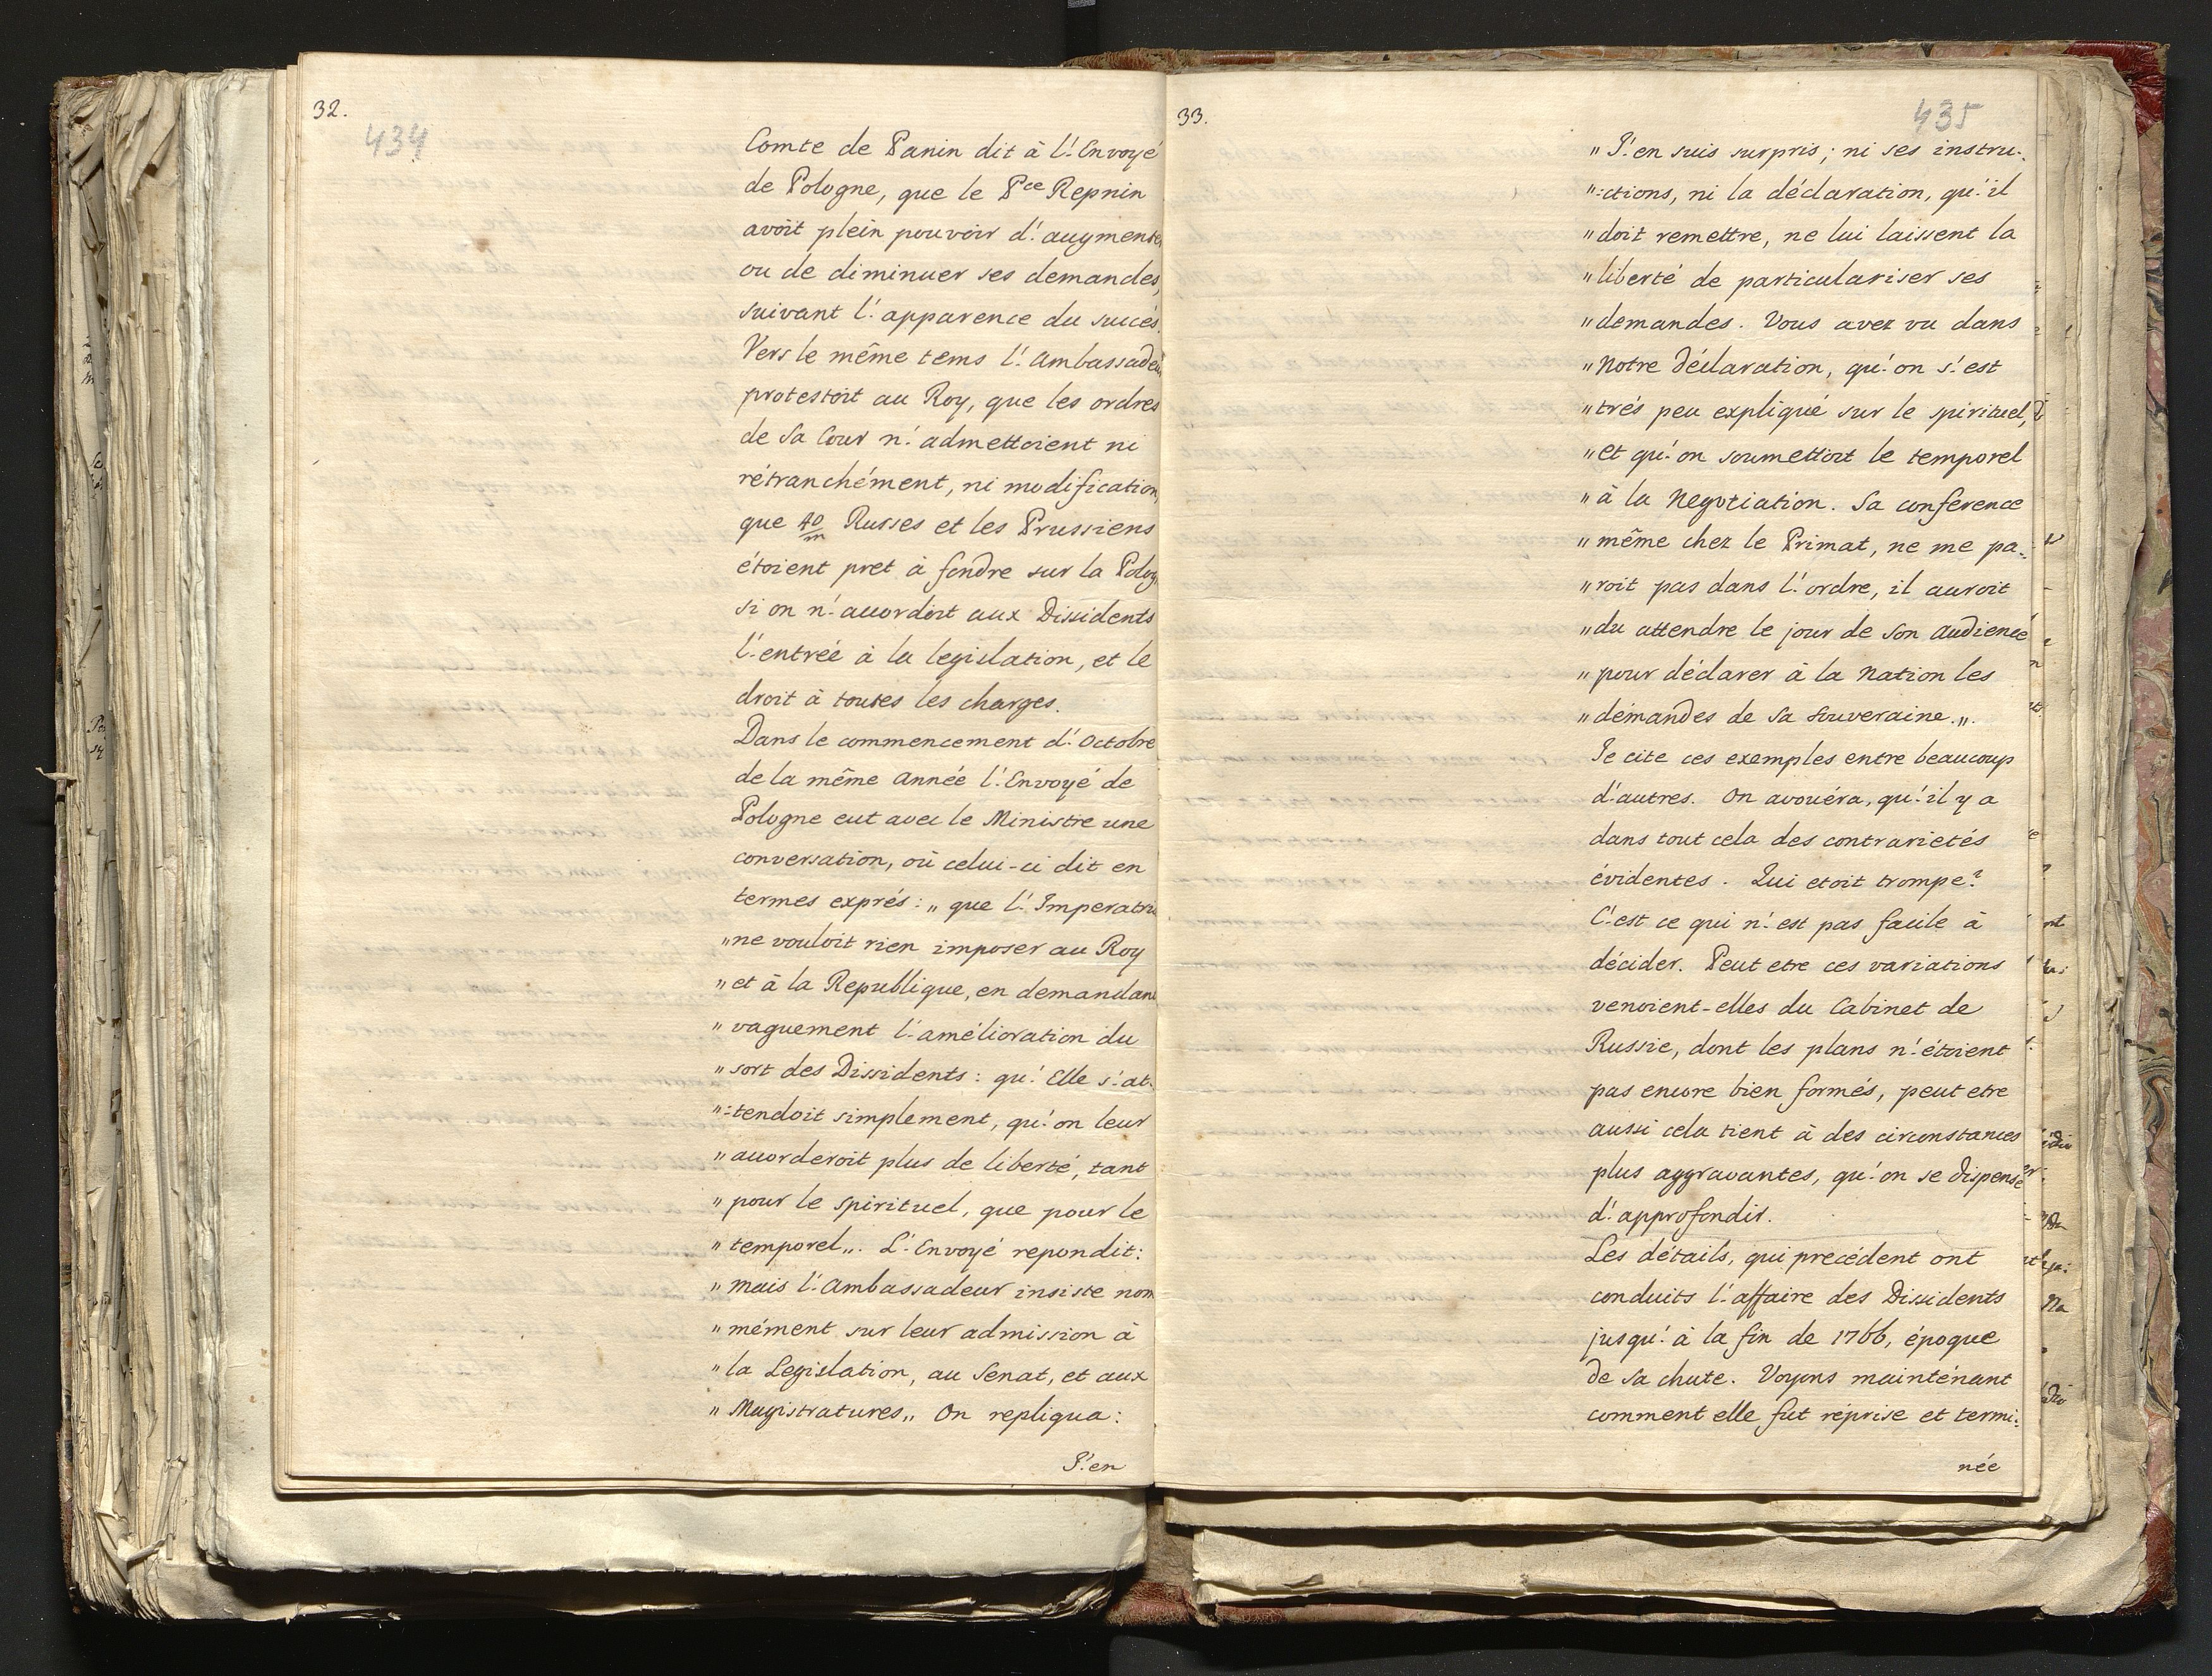 32.
434
Comte de Panin dit à l'Envoyé
de Pologne, que le Pce Repnin
avoit plein pouvoir d'augmenter
ou de diminuer ses demandes,
suivant l'apparence du succés.
Vers le même tems l'Ambassadeur
protestoit au Roy, que les ordres
de sa Cour n'admettoient ni
rétranchément, ni modification,
que 40/m Russes et les Prussiens
étoient pret à fondre sur la Polog
si on n'accordoit aux Dissidents
l'entrée à la legislation, et le
droit à toutes les charges.
Dans le commencement d'Octobre
de la même Année l'Envoyé de
Pologne eut avec le Ministre une
conversation, où celui-ci dit en
termes exprés: „que l'Imperatri
„ne vouloit rien imposer au Roy
„et à la Republique, en demandant
„vaguement l'amélioration du
„sort des Dissidents: qu'Elle s'at-
„:tendoit simplement, qu'on leur
„accorderoit plus de liberté, tant
„pour le spirituel, que pour le
„temporel„. L'Envoyé repondit:
„mais l'Ambassadeur insiste nom
„mément sur leur admission à
„la Legislation, au Senat, et aux
„Magistratures„ On repliqua:
J'en
33.
435
„J'en suis surpris; ni ses instru-
„:ctions, ni la déclaration, qu'il
„doit remettre, ne lui laissent la
„liberté de particulariser ses
„demandes. Vous avez vu dans
„Notre déclaration, qu'on s'est
„trés peu expliqué sur le spirituel,
„et qu'on soumettoit le temporel
„à la Negotiation. Sa conference
„même chez le Primat, ne me pa-
„roit pas dans l'ordre, il auroit
„du attendre le jour de son Audience
„pour déclarer à la Nation les
„démandes de sa Souveraine.„.
Je cite ces exemples entre beaucoup
d'autres. On avouéra, qu'il y a
dans tout cela des contrarietés
évidentes. Qui etoit trompé?
C'est ce qui n'est pas facile à
décider. Peut etre ces variations
venoient-elles du Cabinet de
Russie, dont les plans n'étoient
pas encore bien formés, peut etre
aussi cela tient à des circonstances
plus aggravantes, qu'on se dispense
d'approfondir.
Les détails, qui precédent ont
conduits l'affaire des Dissidents
jusqu'à la fin de 1766, époque
de sa chute. Voyons maintenant
comment elle fut réprise et termi:
née